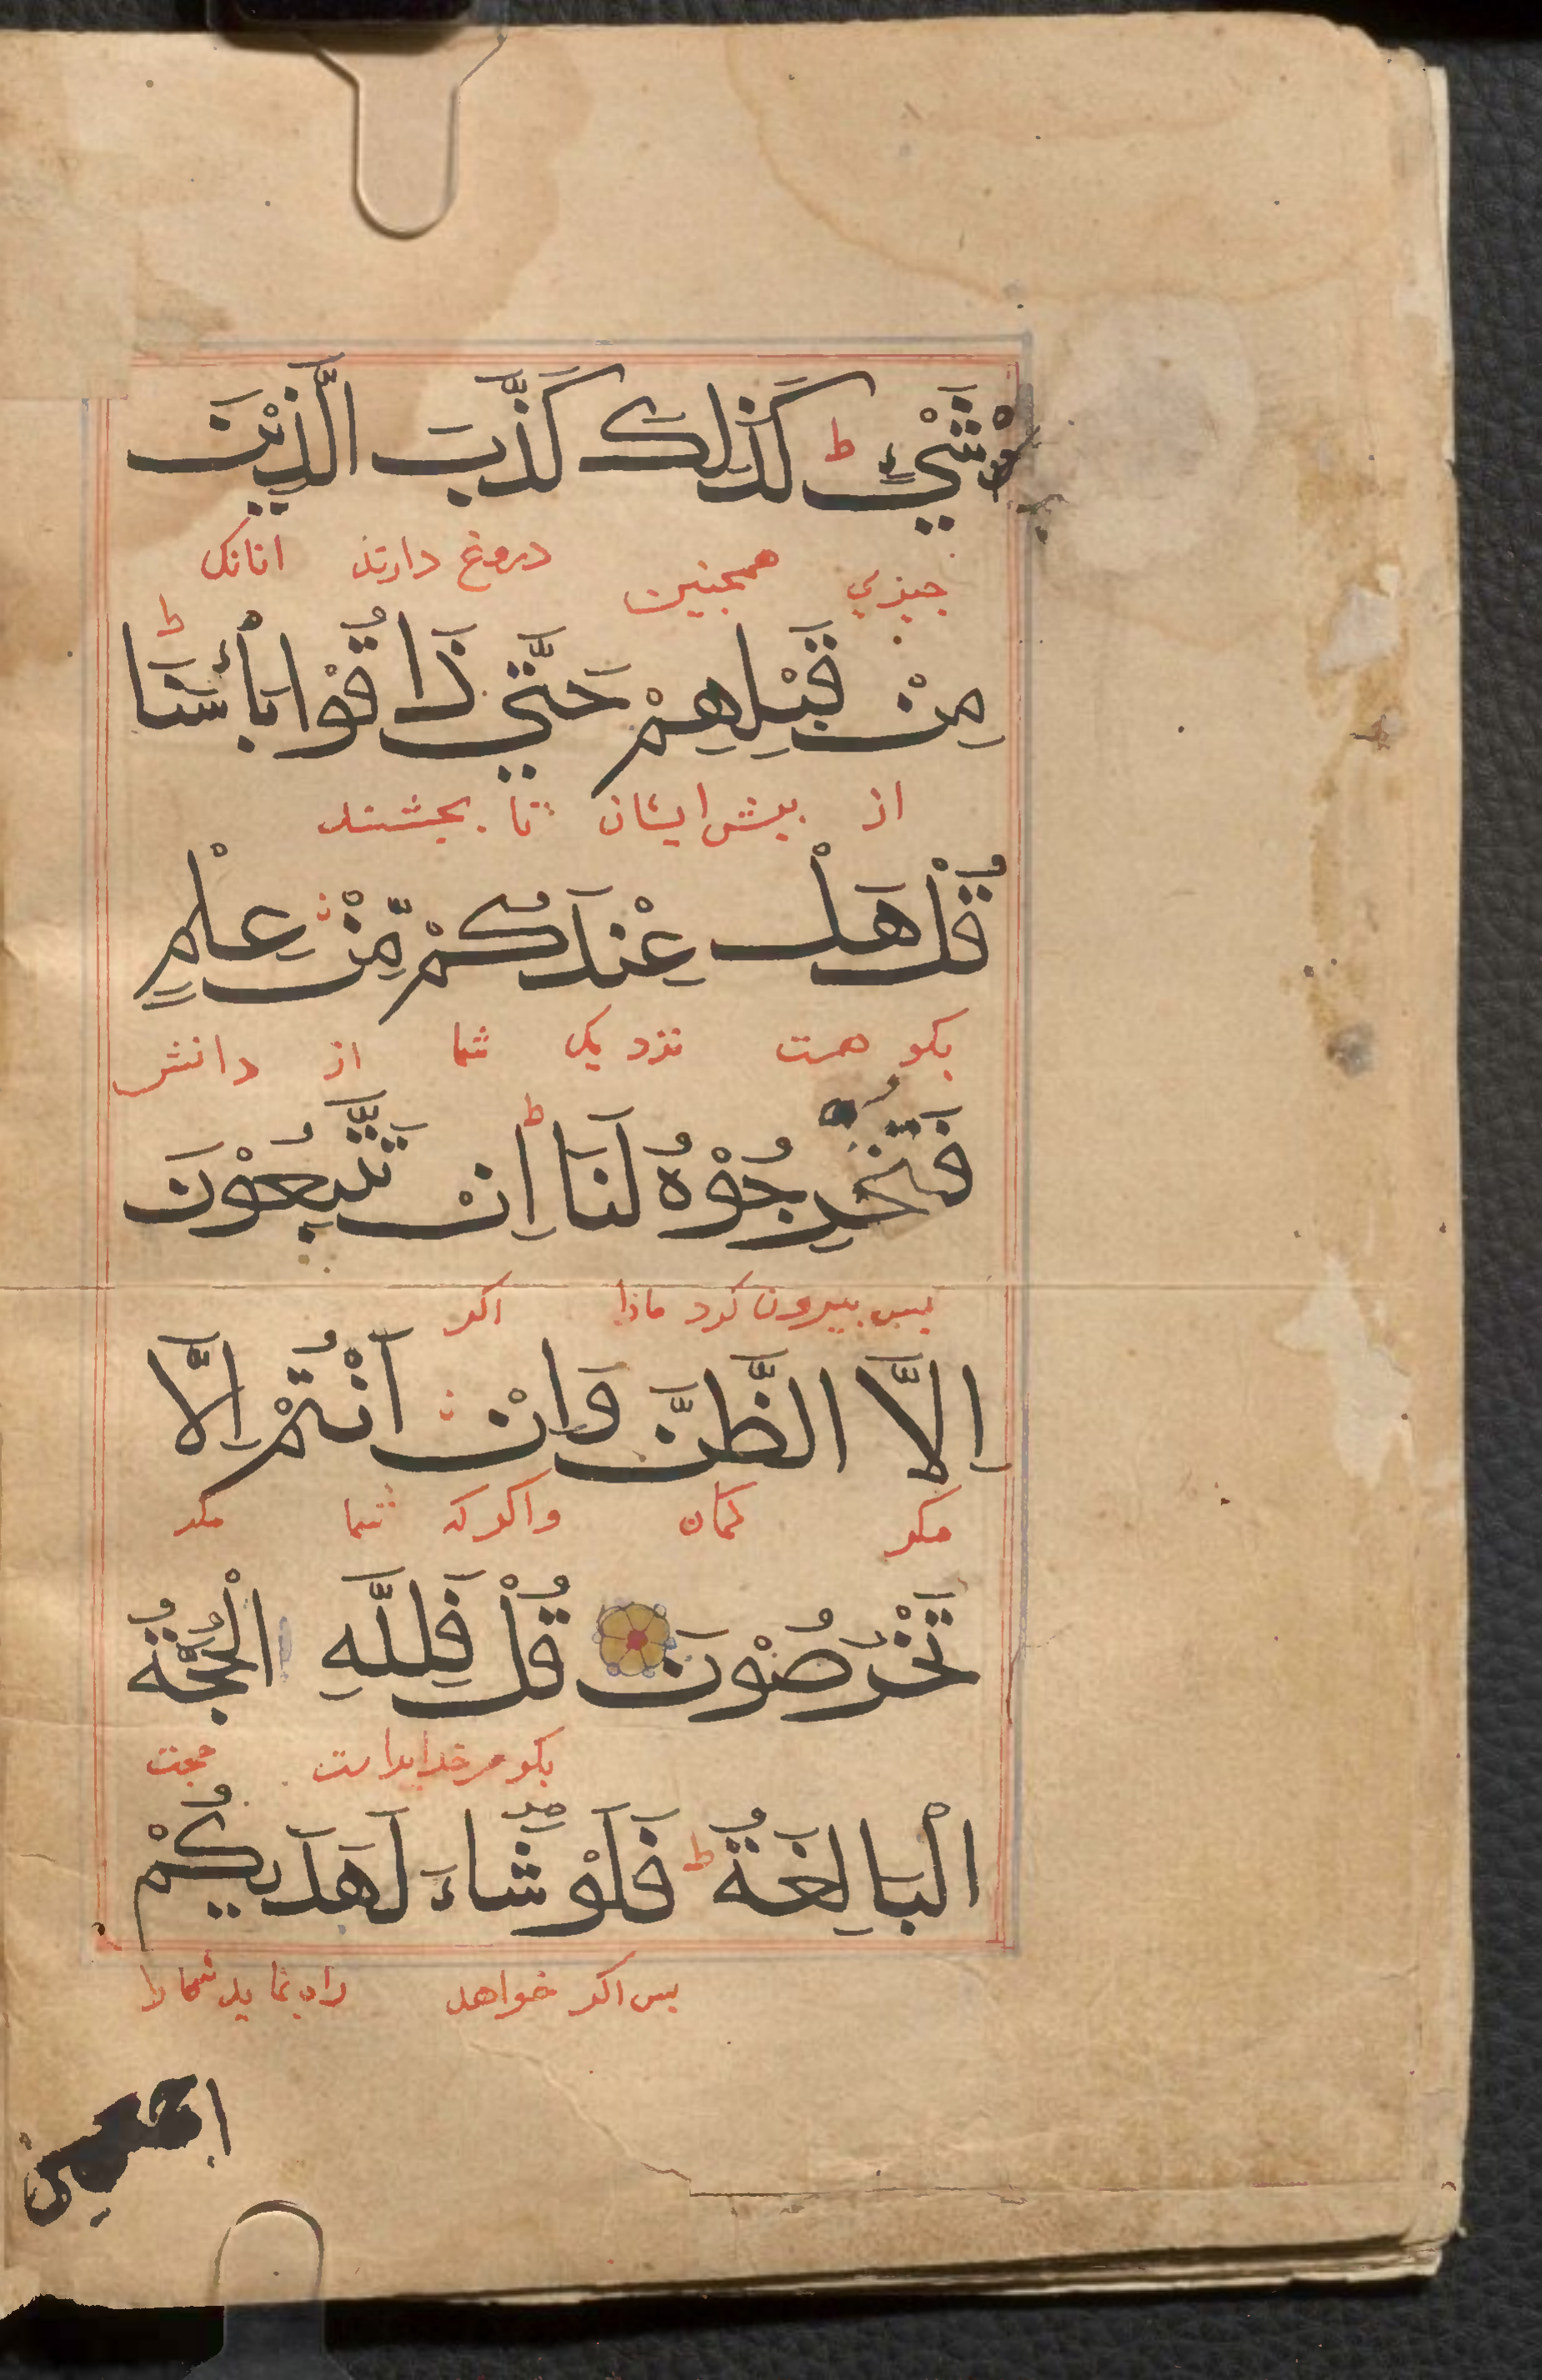 شَيْءٍ ط كَذَلِكَ كَذَّبَ الَّذِيْنَ
جيزي همجنين دروغ دارند انانك
مِنْ قَبْلِهِمْ حَتَّي ذَاقُوْا بَأْسَنَا ط
از بيش ايشان تا بجشتند
قُلْ هَلْ عِنْدَكُمْ مِّنْ عِلْمٍ
بكو هست نزديك شما از دانش
فَتُخْرِجُوْهُ لَنَا ط اِنْ تَتَّبِعُوْنَ
بس بيرون كرد مارا اكر
اِلَّا الظَّنَّ وَاِنْ اَنْتُمْ اِلَّا
مكر كمان واكر كه شما مكر
تَخْرُصُوْنَ قُلْ فَلِلَّهِ الْحُجَّةُ
بكو مر خدايراست حجت
الْبَالِغَةُ ط فَلَوْ شَاءَ لَهَدَيكُمْ
بس اكر خواهد راه نمايد شما را
اجمعين